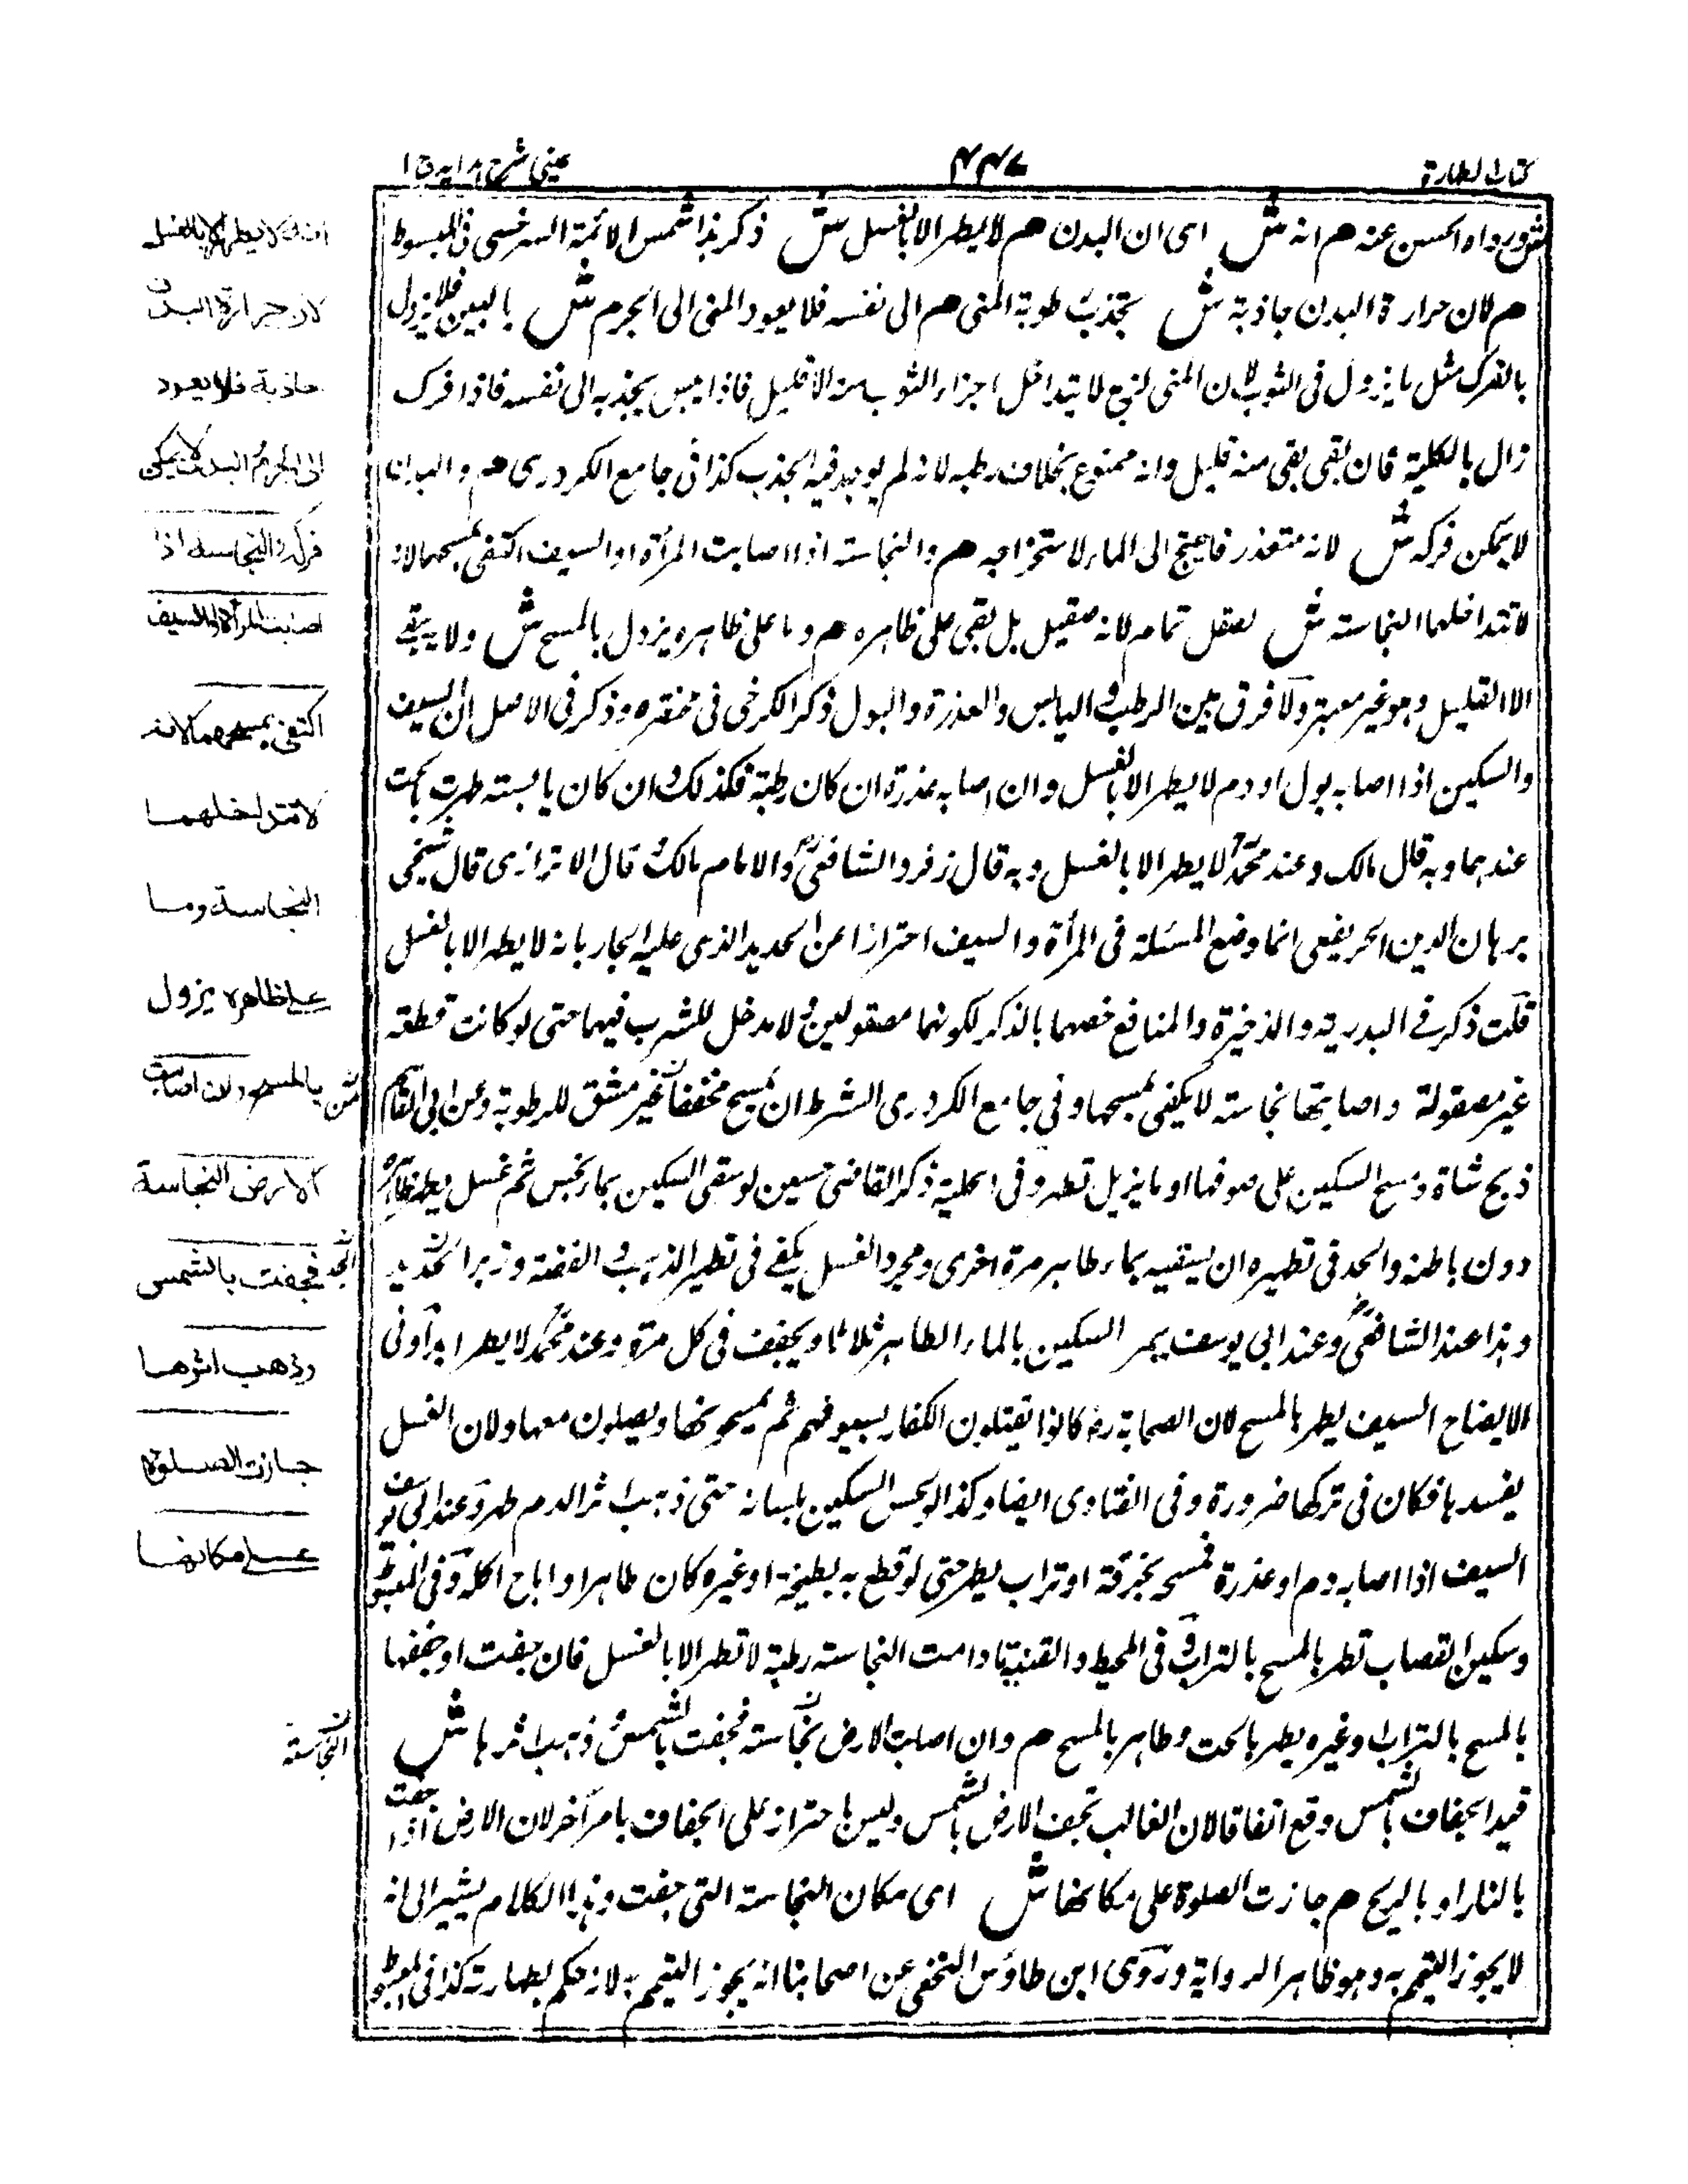 كتاب الطهارة
٤٤٧
عيني شرح هدايه ج ١
ش ورواه الحسن عنه هم انه ش اى ان البدن هم لا يطهر الا بالغسل ش ذكر هذا شمس الائمة السرخسى فى المبسوط
هم لان حرارة البدن جاذبة ش تجذب رطوبة المنى هم الى نفسه فلا يعود المنى الى الجرم ش باليبس فلا يزول
بالفرك مثل ما يزول فى الثوب لان المنى لزج لا يتداخل اجزاء الثوب منه الا قليل فاذا يبس يجذبه الى نفسه فاذا فرك
زال بالكلية فان بقى بقى منه قليل وانه ممنوع بخلاف رطبه لانه لم يوجد فيه الجذب كذا فى جامع الكردرى هم والبدن
لا يمكن فركه ش لانه متعذر فاحتيج الى الماء لاستخراجه هم والنجاسة اذا اصابت المرأة او السيف اكتفى بمسحهما لانه
لا تتداخلهما النجاسة ش لصقل تمامه لانه صقيل بل بقى على ظاهره هم وما على ظاهره يزول بالمسح ش ولا يبقى
الا القليل وهو غير معتبر ولا فرق بين الرطب واليابس والعذرة والبول ذكر الكرخى فى مختصره وذكر فى الاصل ان السيف
والسكين اذا اصابه بول او دم لا يطهر الا بالغسل وان اصابه عذرة ان كان رطبة فكذلك وان كان يابسة طهرت بالحت
عندهما وبه قال مالك وعند محمدؒ لا يطهر الا بالغسل وبه قال زفر والشافعىؒ والامام مالكؒ قال الاترازى قال شيخى
برهان الدين الحريفعى انما وضع المسئلة فى المرأة والسيف احترازا عن الحديد الذى عليه الجار بانه لا يطهر الا بالغسل
قلت ذكر فى البدرية والذخيرة والمنافع خصهما بالذكر لكونهما مصقولين ولا مدخل للشرب فيهما حتى لو كانت قطعة
غير مصقولة واصابتها نجاسة لا يكفى بمسحها وفى جامع الكردرى الشرط ان يمسح مخففا غير مشق للرطوبة وعن ابى القاسم
ذبح شاة ومسح السكين على صوفها او ما يزيل تطهر وفى الحلية ذكر القاضى حسين لو سقى السكين بماء نجس ثم غسل يطهر ظاهره
دون باطنه والحد فى تطهيره ان يسقيه بماء طاهر مرة اخرى ومجرد الغسل يكفى فى تطهير الذهب والفضة وزبر الحديد
وهذا عند الشافعىؒ وعند ابى يوسف يمر السكين بالماء الطاهر ثلاثا ويجفف فى كل مرة وعند محمدؒ لا يطهر ابدا وفى
الايضاح السيف يطهر بالمسح لان الصحابة رض كانوا يقتلون الكفار بسيوفهم ثم يمسحونها ويصلون معها ولان الغسل
يفسدها فكان فى تركها ضرورة وفى الفتاوى ايضا وكذا لو لحس السكين بلسانه حتى ذهب اثر الدم طهر وعند ابى يوسف
السيف اذا اصابه دم او عذرة فمسحه بخرقة او تراب يطهر حتى لو قطع به بطيخة او غيره كان طاهرا واباح اكله وفى المبسوط
وسكين القصاب تطهر بالمسح بالتراب وفى المحيط والقنية ما دامت النجاسة رطبة لا تطهر الا بالغسل فان جفت او جففها
بالمسح بالتراب او غيره يطهر بالحت وطاهر بالمسح هم وان اصابت الارض نجاسة فجفت بالشمس وذهب اثرها ش
قيد الجفاف بالشمس وقع اتفاقا لان الغالب تجف الارض بالشمس وليس باحتراز على الجفاف بامر آخر لان الارض اذا جفت
بالنار او بالريح هم جازت الصلوة على مكانها ش اى مكان النجاسة التى جفت وهذا الكلام يشير الى انه
لا يجوز التيمم به وهو ظاهر الرواية وروى ابن طاؤس النخفى عن اصحابنا انه يجوز التيمم به لانه حكم بطهارته كذا فى المبسوط
انه لا يطهر الا بالغسل
لان حرارة البدن
جاذبة فلا يعود
الى الجرم والبدن لا يمكن
فركه والنجاسة اذا
اصابت المرأة او السيف
اكتفى بمسحهما لانه
لا تتداخلهما
النجاسة وما
على ظاهره يزول
بالمسح وان اصابت
الارض النجاسة
فجفت بالشمس
وذهب اثرها
جازت الصلوة
على مكانها
النجاسة